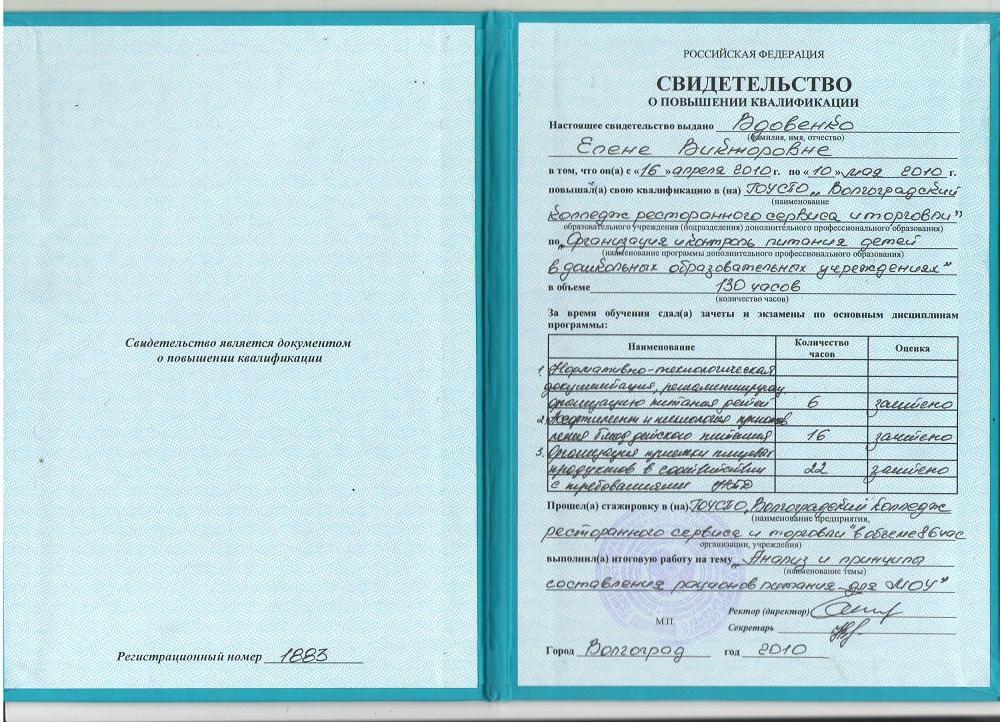 Свидетельство является документом
о повышении квалификации
Регистрационный номер 1883
РОССИЙСКАЯ ФЕДЕРАЦИЯ
СВИДЕТЕЛЬСТВО
О ПОВЫШЕНИИ КВАЛИФИКАЦИИ
Настоящее свидетельство выдано Вдовенко
(фамилия, имя, отчество)
Елене Викторовне
в том, что он(а) с «16» апреля 2010 г. по «10» мая 2010 г.
повышал(а) свою квалификацию в (на) ГОУСПО „Волгоградский
(наименование
колледж ресторанного сервиса и торговли"
образовательного учреждения (подразделения) дополнительного профессионального образования)
по „Организация и контроль питания детей
(наименование программы дополнительного профессионального образования)
в дошкольных образовательных учреждениях"
в объеме 130 часов
(количество часов)
За время обучения сдал(а) зачеты и экзамены по основным дисциплинам
программы:
Наименование Количество часов Оценка
1. Нормативно-технологическая
документация, регламентирующ.
организацию питания детей 6 зачтено
2. Ассортимент и технология приготов
ления блюд детского питания 16 зачтено
3. Организация приемки пищевых
продуктов в соответствии 22 зачтено
с требованиями НТД
Прошел(а) стажировку в (на) ГОУСПО „Волгоградский колледж
(наименование предприятия,
ресторанного сервиса и торговли" в объеме 86 час
организации, учреждения)
выполнил(а) итоговую работу на тему „Анализ и принципы
(наименование темы)
составления рационов питания для МОУ"
Ректор (директор)
М.П.
Секретарь
Город Волгоград год 2010